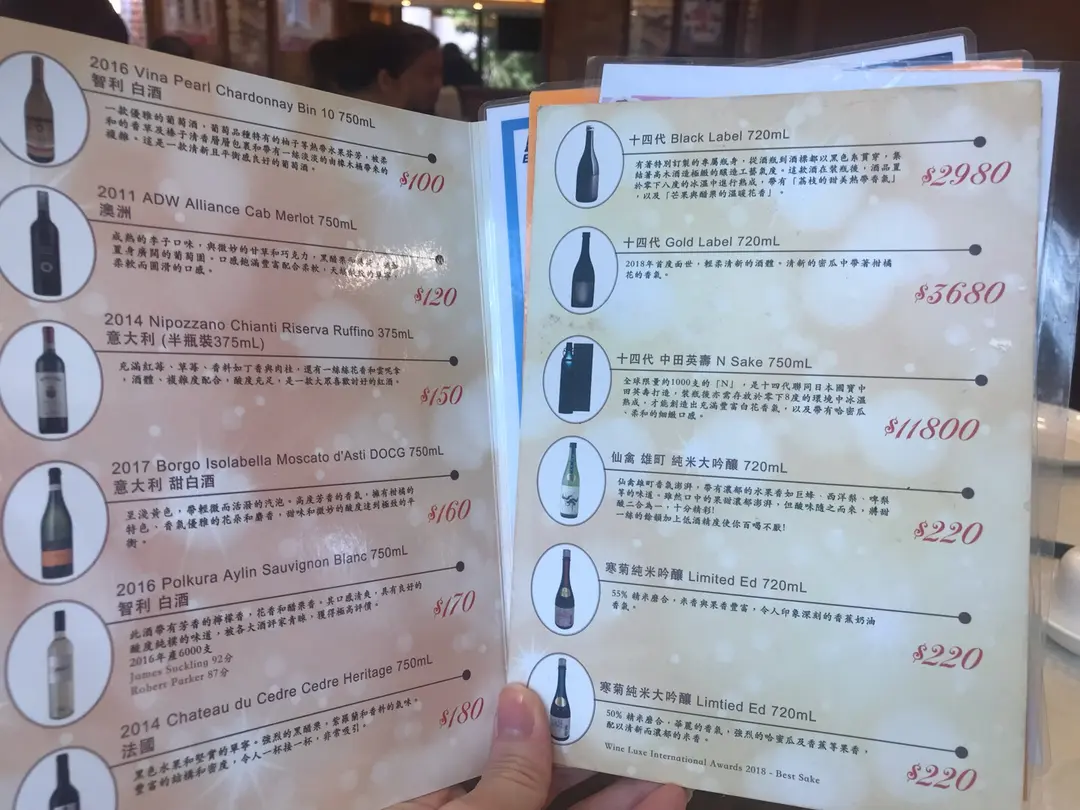 2016 Vina Pearl Chardonnay Bin 10 750mL
智利 白酒
一款優雅的葡萄酒，葡萄品種特有的柚子等熱帶水果芬芳，被柔
和的香草及榛子清香層層包裹和帶有一絲淡淡的由橡木桶帶來的
複雜。這是一款清新且平衡感良好的葡萄酒。
$100
2011 ADW Alliance Cab Merlot 750mL
澳洲
成熟的李子口味，與微妙的甘草和巧克力，黑醋栗
置身廣闊的葡萄園。口感飽滿豐富配合柔軟，天
柔軟而圓滑的口感。
$120
2014 Nipozzano Chianti Riserva Ruffino 375mL
意大利 (半瓶裝375mL)
充滿紅莓、草莓、香料如丁香與肉桂，還有一絲絲花香和雲呢拿
，酒體、複雜度配合，酸度充足，是一款大眾喜歡討好的紅酒。
$150
2017 Borgo Isolabella Moscato d'Asti DOCG 750mL
意大利 甜白酒
呈淺黃色，帶輕微而活潑的汽泡。高度芳香的香氣，擁有柑橘的
特色、香氣優雅的花朵和麝香，甜味和微妙的酸度達到極致的平
衡。
$160
2016 Polkura Aylin Sauvignon Blanc 750mL
智利 白酒
此酒帶有芳香的檸檬香，花香和醋栗香。其口感清爽，具有良好的
酸度純樸的味道，被各大酒評家青睞，獲得極高評價。
2016年產6000支
James Suckling 92分
Robert Parker 87分
$170
2014 Chateau du Cedre Cedre Heritage 750mL
法國
黑色水果和堅實的單寧。強烈的黑醋栗，紫羅蘭和香料的氣味。
豐富的結構和密度，令人一杯接一杯，非常吸引。
$180
十四代 Black Label 720mL
有著特別訂製的專屬瓶身，從酒瓶到酒標都以黑色系貫穿，集
結著高木酒造極緻的釀造工藝氣度。這款酒在裝瓶後，酒品置
於零下八度的冰溫中進行熟成，帶有「荔枝的甜美熱帶香氣」
，以及「芒果與醋栗的溫暖花香」。
$2980
十四代 Gold Label 720mL
2018年首度面世，輕柔清新的酒體。清新的密瓜中帶著柑橘
花的香氣。
$3680
十四代 中田英壽 N Sake 750mL
全球限量約1000支的「N」，是十四代聯同日本國寶中
田英壽打造，裝瓶後亦需存放於零下8度的環境中冰溫
熟成，才能創造出充滿豐富白花香氣，以及帶有哈密瓜
、柔和的細緻口感。
$11800
仙禽 雄町 純米大吟釀 720mL
仙禽雄町香氣澎湃，帶有濃郁的水果香如巨蜂、西洋梨、啤梨
等的味道。雖然口中的果甜濃郁澎湃，但酸味隨之而來，將甜
酸二合為一，十分精彩!
一絲的餘韻加上低酒精度使你百喝不厭!
$220
寒菊純米吟釀 Limited Ed 720mL
55% 精米磨合，米香與果香豐富，令人印象深刻的香蕉奶油
香氣。
$220
寒菊純米大吟釀 Limtied Ed 720mL
50% 精米磨合，華麗的香氣，強烈的哈密瓜及香蕉等果香，
配以清新而濃郁的米香。
Wine Luxe International Awards 2018 - Best Sake
$220